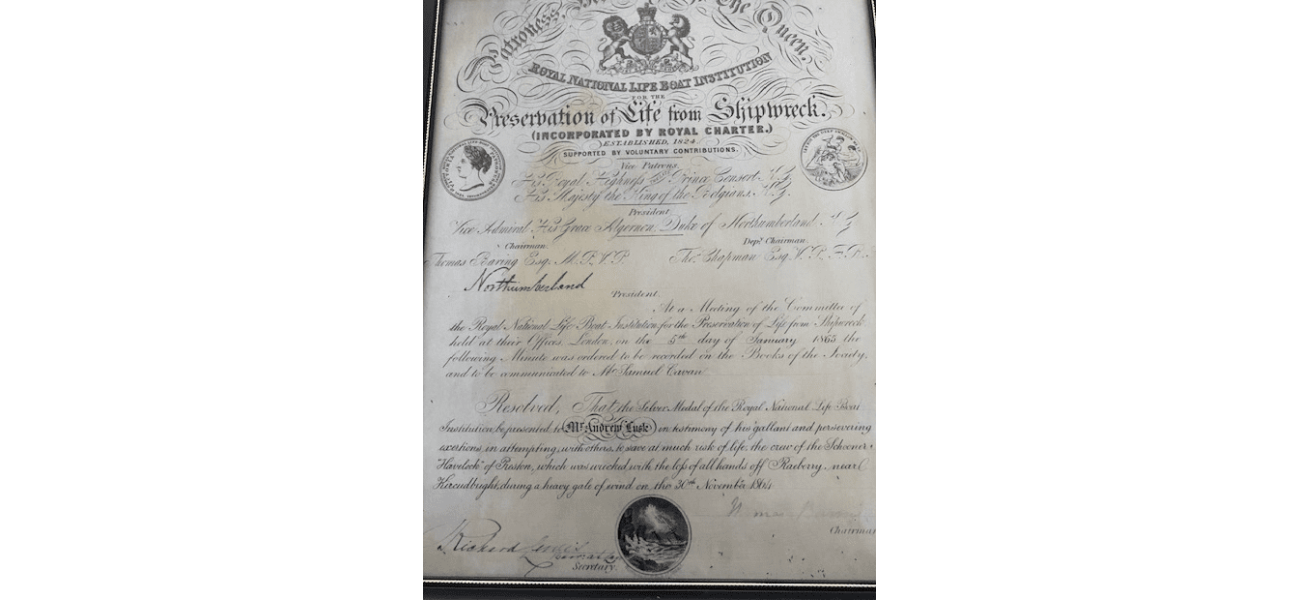 Patroness, The Queen.
ROYAL NATIONAL LIFE BOAT INSTITUTION
FOR THE
Preservation of Life from Shipwreck.
(INCORPORATED BY ROYAL CHARTER.)
ESTABLISHED, 1824.
SUPPORTED BY VOLUNTARY CONTRIBUTIONS.
Vice Patrons.
His Royal Highness The Prince Consort K.G.
His Majesty the King of the Belgians. K.G.
President.
Vice Admiral His Grace Algernon, Duke of Northumberland K G
Chairman. Depy. Chairman.
Thomas Baring Esq. M.P. V.P. Thos. Chapman Esq. V.P. F.R.
Northumberland
President.
At a Meeting of the Committee of
the Royal National Life Boat Institution for the Preservation of Life from Shipwreck
held at their Offices, London, on the 5th day of January 1865 the
following Minute was ordered to be recorded on the Books of the Society,
and to be communicated to Mr Samuel Cavan
Resolved, That the Silver Medal of the Royal National Life Boat
Institution be presented to Mr Andrew Lusk in testimony of his gallant and persevering
exertions, in attempting, with others, to save at much risk of life, the crew of the Schooner
"Havelock" of Preston, which was wrecked with the loss of all hands off Raeberry, near
Kircudbright, during a heavy gale of wind on the 30th November 1864
Chairman
Richard Lewis
Secretary.